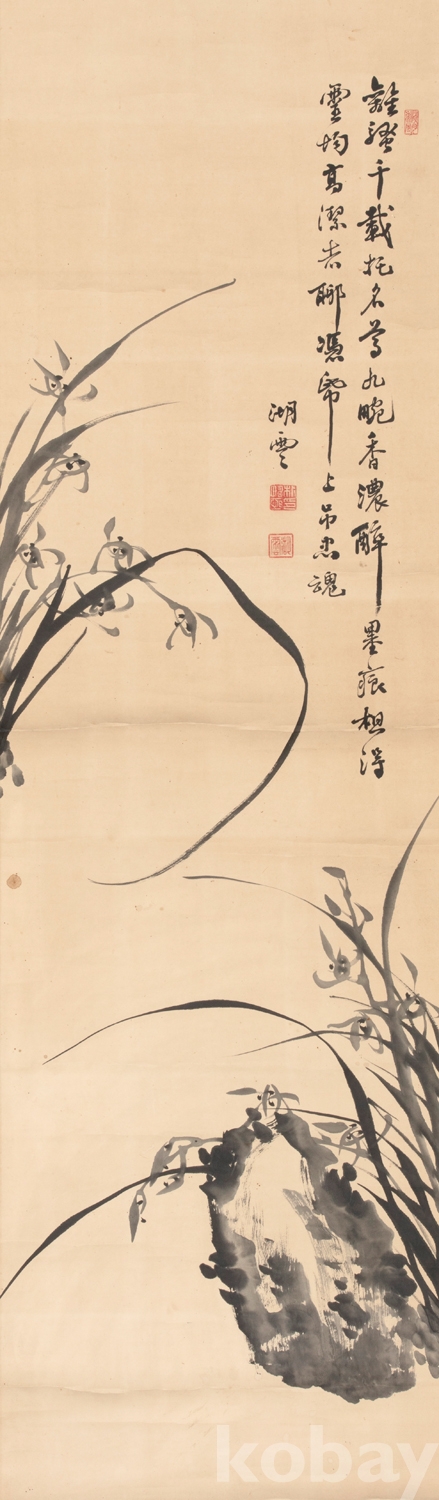 離騷千載托名尊九畹香濃醉墨痕想得
靈均高潔志聊憑帋上吊忠魂
湖雲
kobay